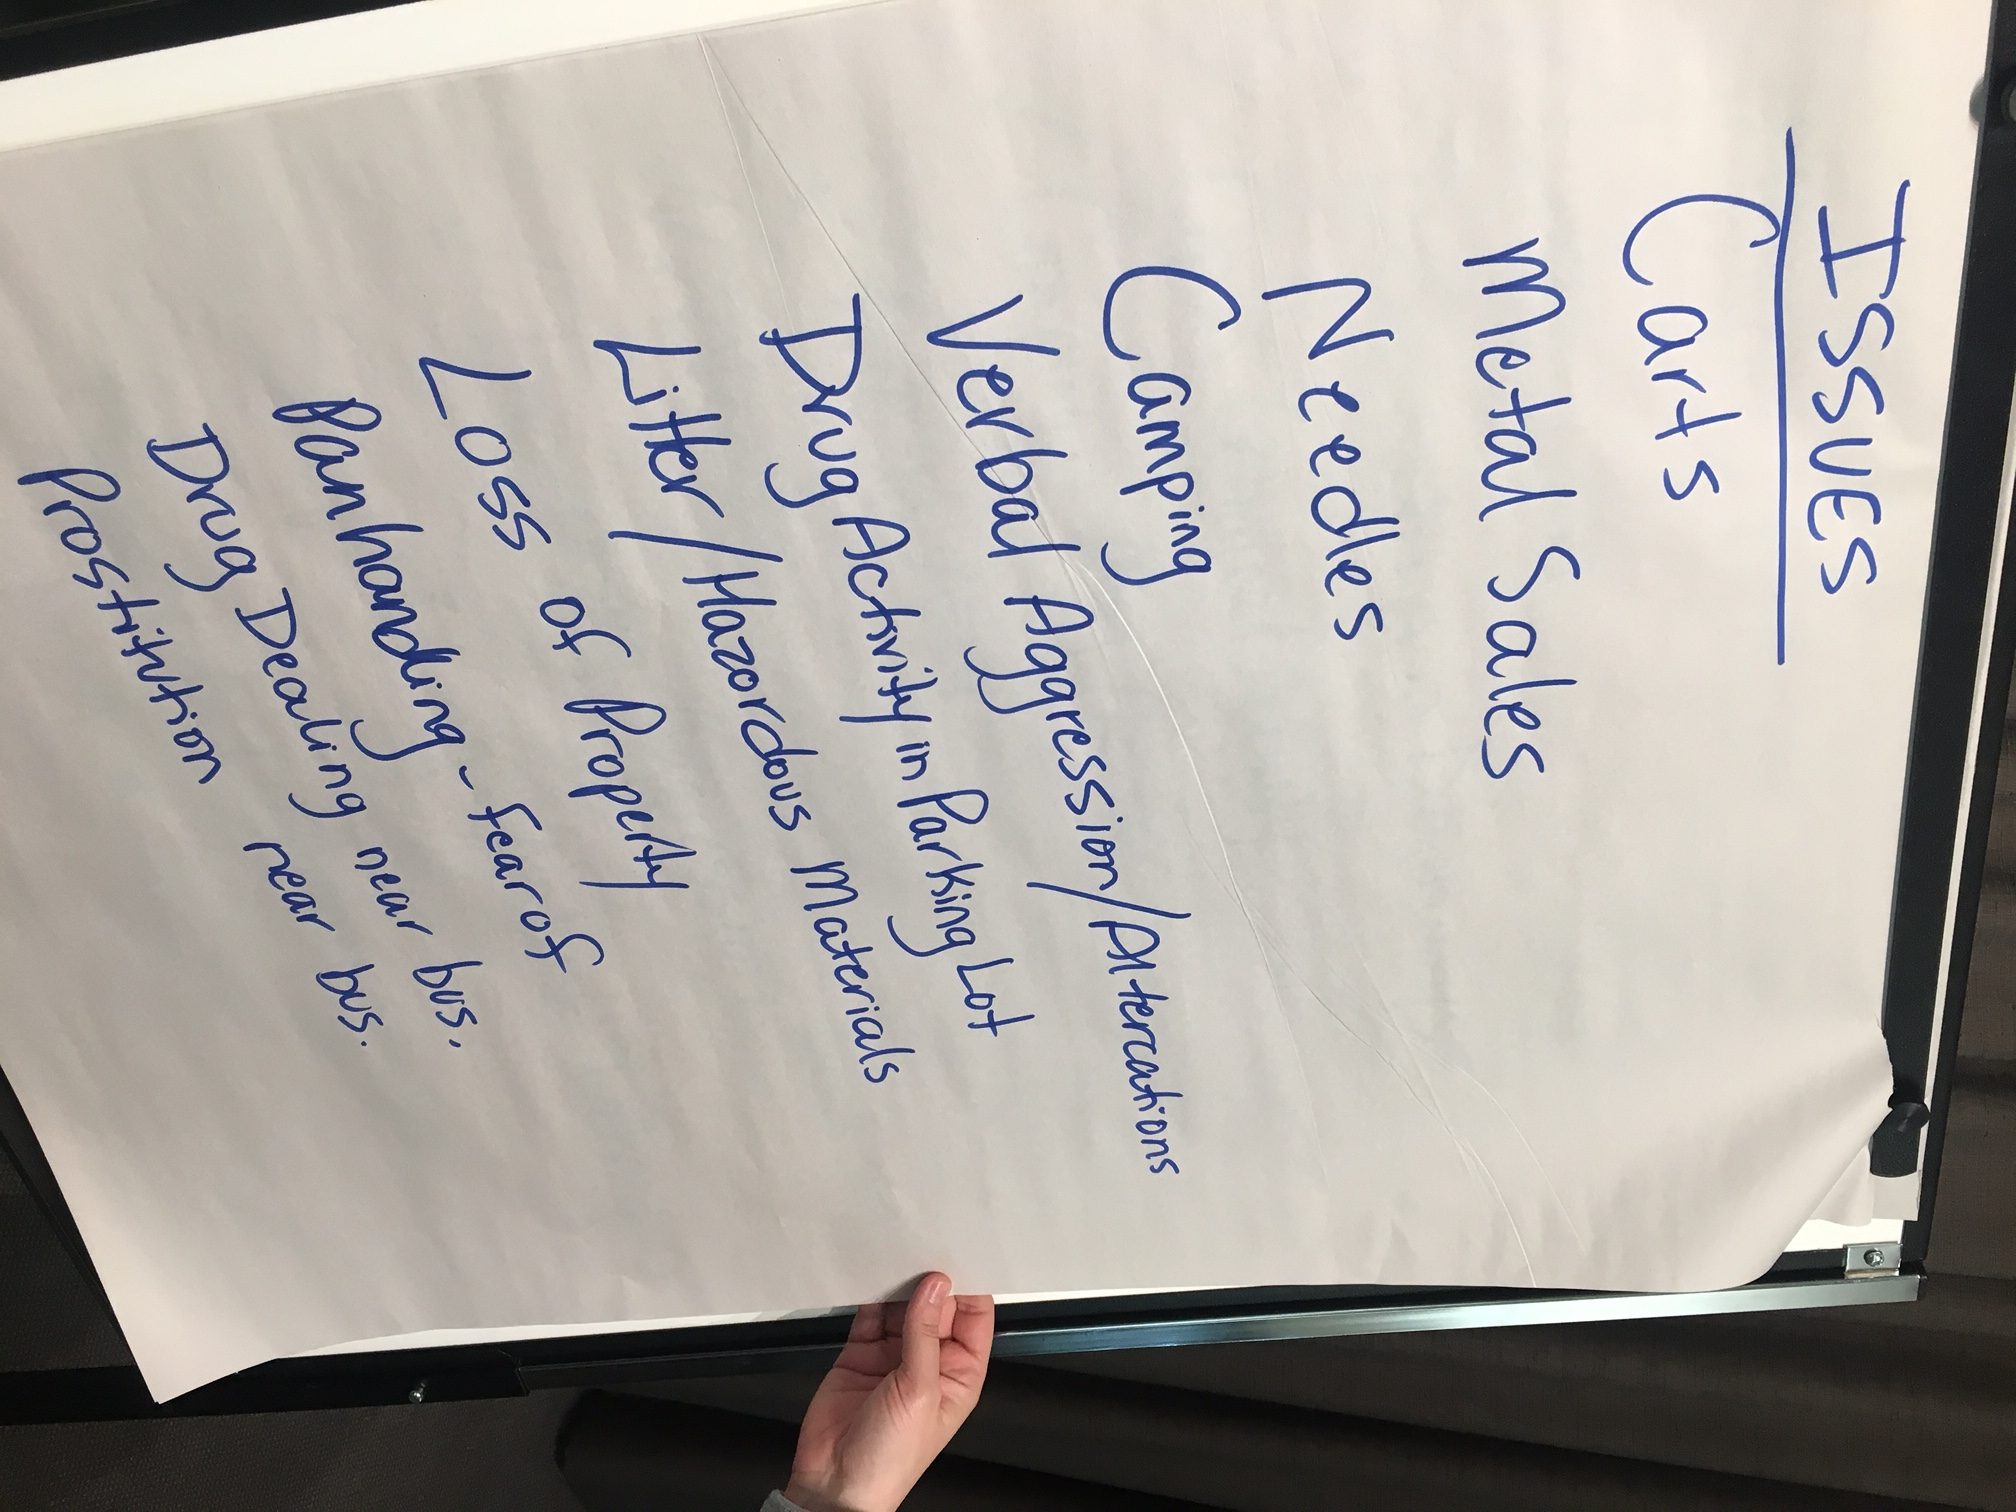 ISSUES
Carts
Metal Sales
Needles
Camping
Verbal Aggression/Altercations
Drug Activity in Parking Lot
Litter/Hazordous Materials
Loss of Property
Panhandling - fear of
Drug Dealing near bus.
Prostitution near bus.